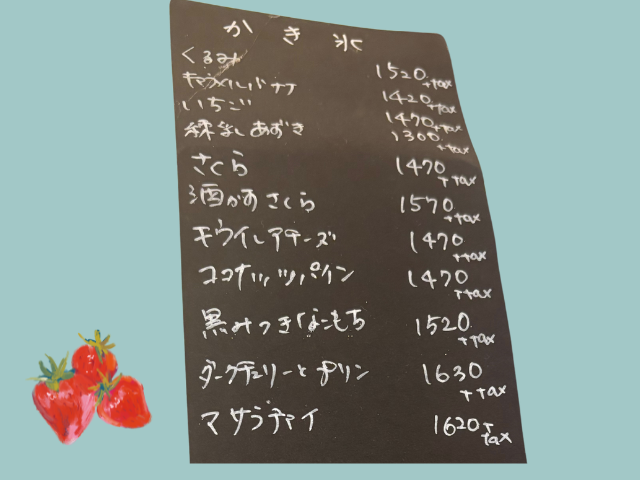 かき氷
くるみ 1520+tax
キャラメルバナナ 1420+tax
いちご 1470+tax
練乳あずき 1300+tax
さくら 1470+tax
酒かすさくら 1570+tax
キウイレアチーズ 1470+tax
ココナッツパイン 1470+tax
黒みつきなこもち 1520+tax
ダークチェリーとプリン 1630+tax
マサラチャイ 1620+tax